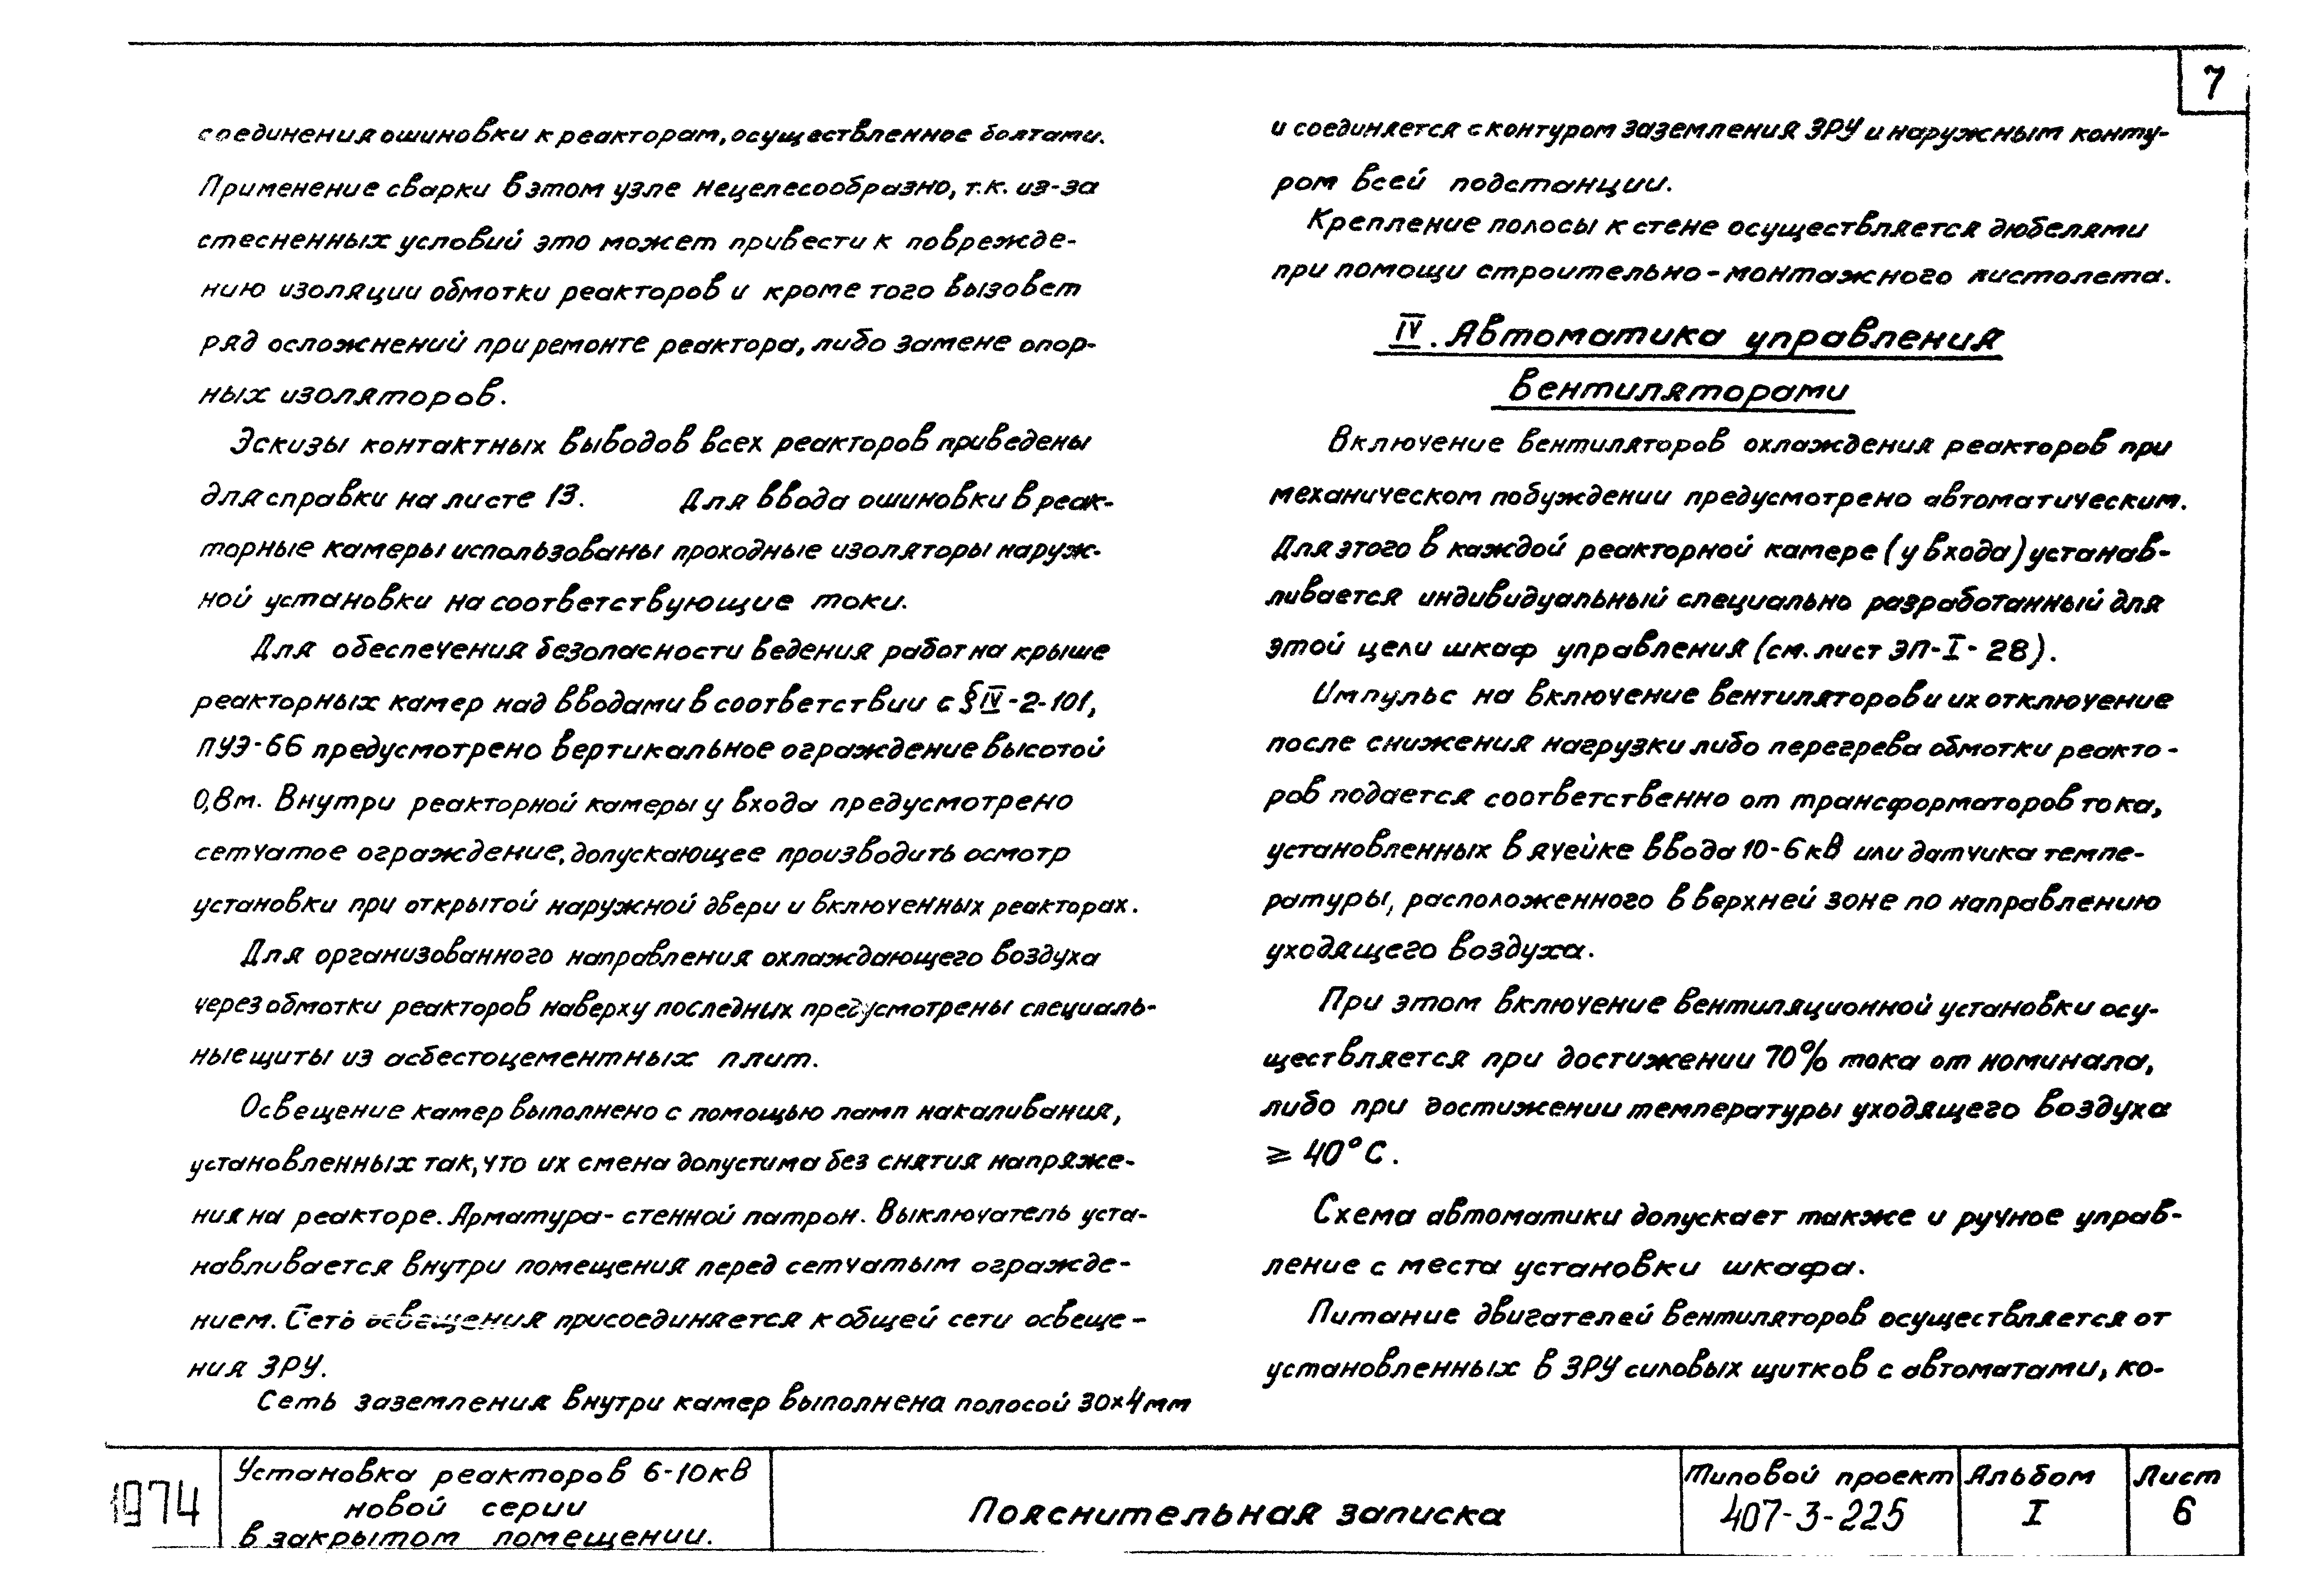 7
соединения ошиновки к реакторам, осуществленное болтами.
Применение сварки в этом узле нецелесообразно, т.к. из-за
стесненных условий это может привести к поврежде-
нию изоляции обмотки реакторов и кроме того вызовет
ряд осложнений при ремонте реактора, либо замене опор-
ных изоляторов.
Эскизы контактных выводов всех реакторов приведены
для справки на листе 13. Для ввода ошиновки в реак-
торные камеры использованы проходные изоляторы наруж-
ной установки на соответствующие токи.
Для обеспечения безопасности ведения работ на крыше
реакторных камер над вводами в соответствии с § IV-2-101,
ПУЭ-66 предусмотрено вертикальное ограждение высотой
0,8м. Внутри реакторной камеры у входа предусмотрено
сетчатое ограждение, допускающее производить осмотр
установки при открытой наружной двери и включенных реакторах.
Для организованного направления охлаждающего воздуха
через обмотки реакторов наверху последних предусмотрены специаль-
ные щиты из асбестоцементных плит.
Освещение камер выполнено с помощью ламп накаливания,
установленных так, что их смена допустима без снятия напряже-
ния на реакторе. Арматура - стенной патрон. Выключатель уста-
навливается внутри помещения перед сетчатым огражде-
нием. Сеть освещения присоединяется к общей сети освеще-
ния ЗРУ.
Сеть заземления внутри камер выполнена полосой 30×4мм
и соединяется с контуром заземления ЗРУ и наружным конту-
ром всей подстанции.
Крепление полосы к стене осуществляется дюбелями
при помощи строительно-монтажного пистолета.
IV. Автоматика управления
вентиляторами
Включение вентиляторов охлаждения реакторов при
механическом побуждении предусмотрено автоматическим.
Для этого в каждой реакторной камере (у входа) устанав-
ливается индивидуальный специально разработанный для
этой цели шкаф управления (см. лист ЭП-I-28).
Импульс на включение вентиляторов и их отключение
после снижения нагрузки либо перегрева обмотки реакто-
ров подается соответственно от трансформаторов тока,
установленных в ячейке ввода 10-6кВ или датчика темпе-
ратуры, расположенного в верхней зоне по направлению
уходящего воздуха.
При этом включение вентиляционной установки осу-
ществляется при достижении 70% тока от номинала,
либо при достижении температуры уходящего воздуха
≥ 40°С.
Схема автоматики допускает также и ручное управ-
ление с места установки шкафа.
Питание двигателей вентиляторов осуществляется от
установленных в ЗРУ силовых щитков с автоматами, ко-
1974
Установка реакторов 6-10кВ
новой серии
в закрытом помещении.
Пояснительная записка
Типовой проект
407-3-225
Альбом
I
Лист
6